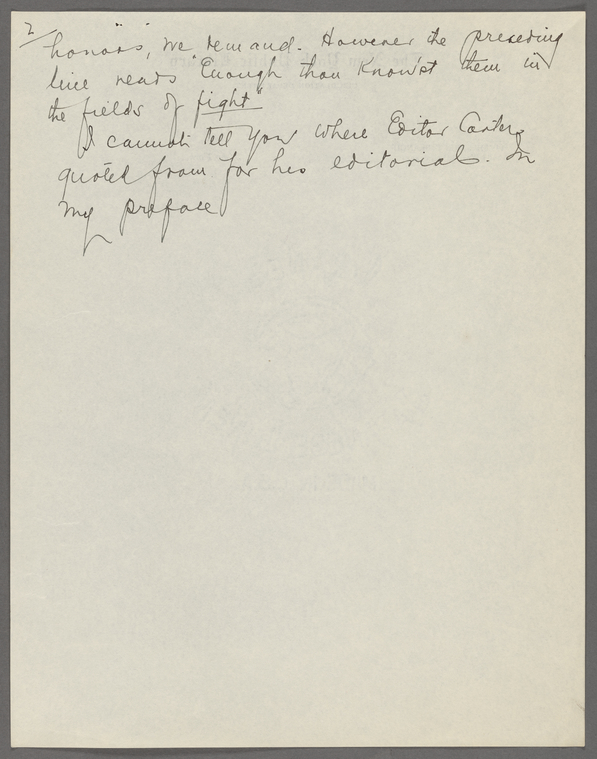 2/
honors, we demand. However the preceding
line reads "Enough thou know'st them in
the fields of fight"
I cannot tell you where Editor Carter
quoted from for his editorial. In
my preface